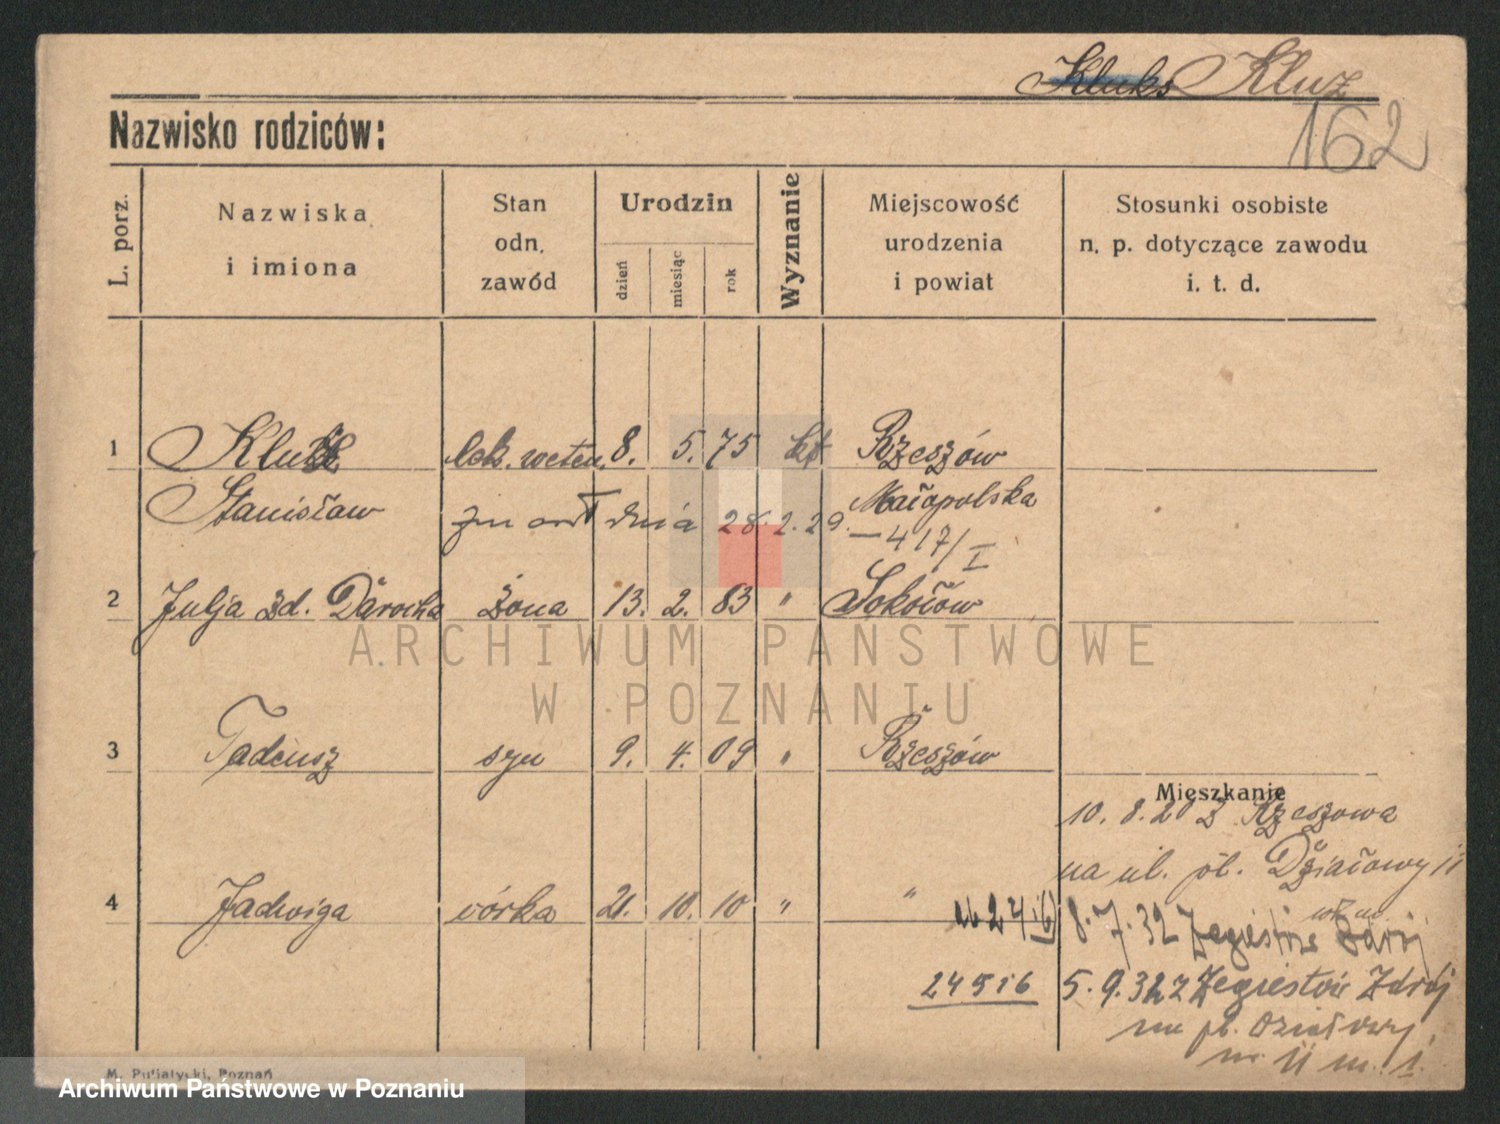 Kluks Kluz
162
Nazwisko rodziców:
L. porz.
Nazwiska
i imiona
Stan
odn.
zawód
Urodzin
dzień
miesiąc
rok
Wyznanie
Miejscowość
urodzenia
i powiat
Stosunki osobiste
n. p. dotyczące zawodu
i. t. d.
1 Kluz lek. weter. 8. 5. 75 kt Rzeszów
Stanisław zmarł dnia 28.2.29. Małopolska
— 417/I
2 Julja zd. Darocha żona 13. 2. 83 " Sokołów
ARCHIWUM PAŃSTWOWE
W POZNANIU
3 Tadeusz syn 9. 4. 09 " Rzeszów
Mieszkanie
10. 8. 20 z Rzeszowa
na ul. pl. Działowy 11
4 Jadwiga córka 21. 10. 10 " "
8.7.32 Żegiestów Zdrój
24516 5.9.32 z Żegiestów Zdrój
na pl. Działowy
nr. 11 m. 1.
M. Putiatycki, Poznań
Archiwum Państwowe w Poznaniu